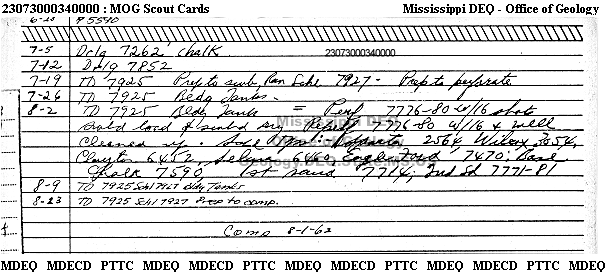 23073000340000 : MOG Scout Cards Mississippi DEQ - Office of Geology
7-5 Drlg 7262' chalk. 23073000340000
7-12 Drlg 7852
7-19 TD 7925 Prep to swb Ran Schl 7927 - Prep to perforate
7-26 TD 7925 Bldg Tanks.
8-2 TD 7925 Bldg Tanks = Perf 7776-80 w/16 shots
load & Reperf 7776-80 w/16 & well
Cleaned up. 2564, Wilcox 3054,
Clayton 6452, Selma 6460, Eagle Ford 7470; Base
Chalk 7590, 1st sand 7714; 2nd Sd 7771-81
8-9 TD 7925 Schl 7927 Bldg Tanks
8-23 TD 7925 Schl 7927 Prep to comp.
Comp 8-1-62
MDEQ MDECD PTTC MDEQ MDECD PTTC MDEQ MDECD PTTC MDEQ MDECD PTTC MDEQ